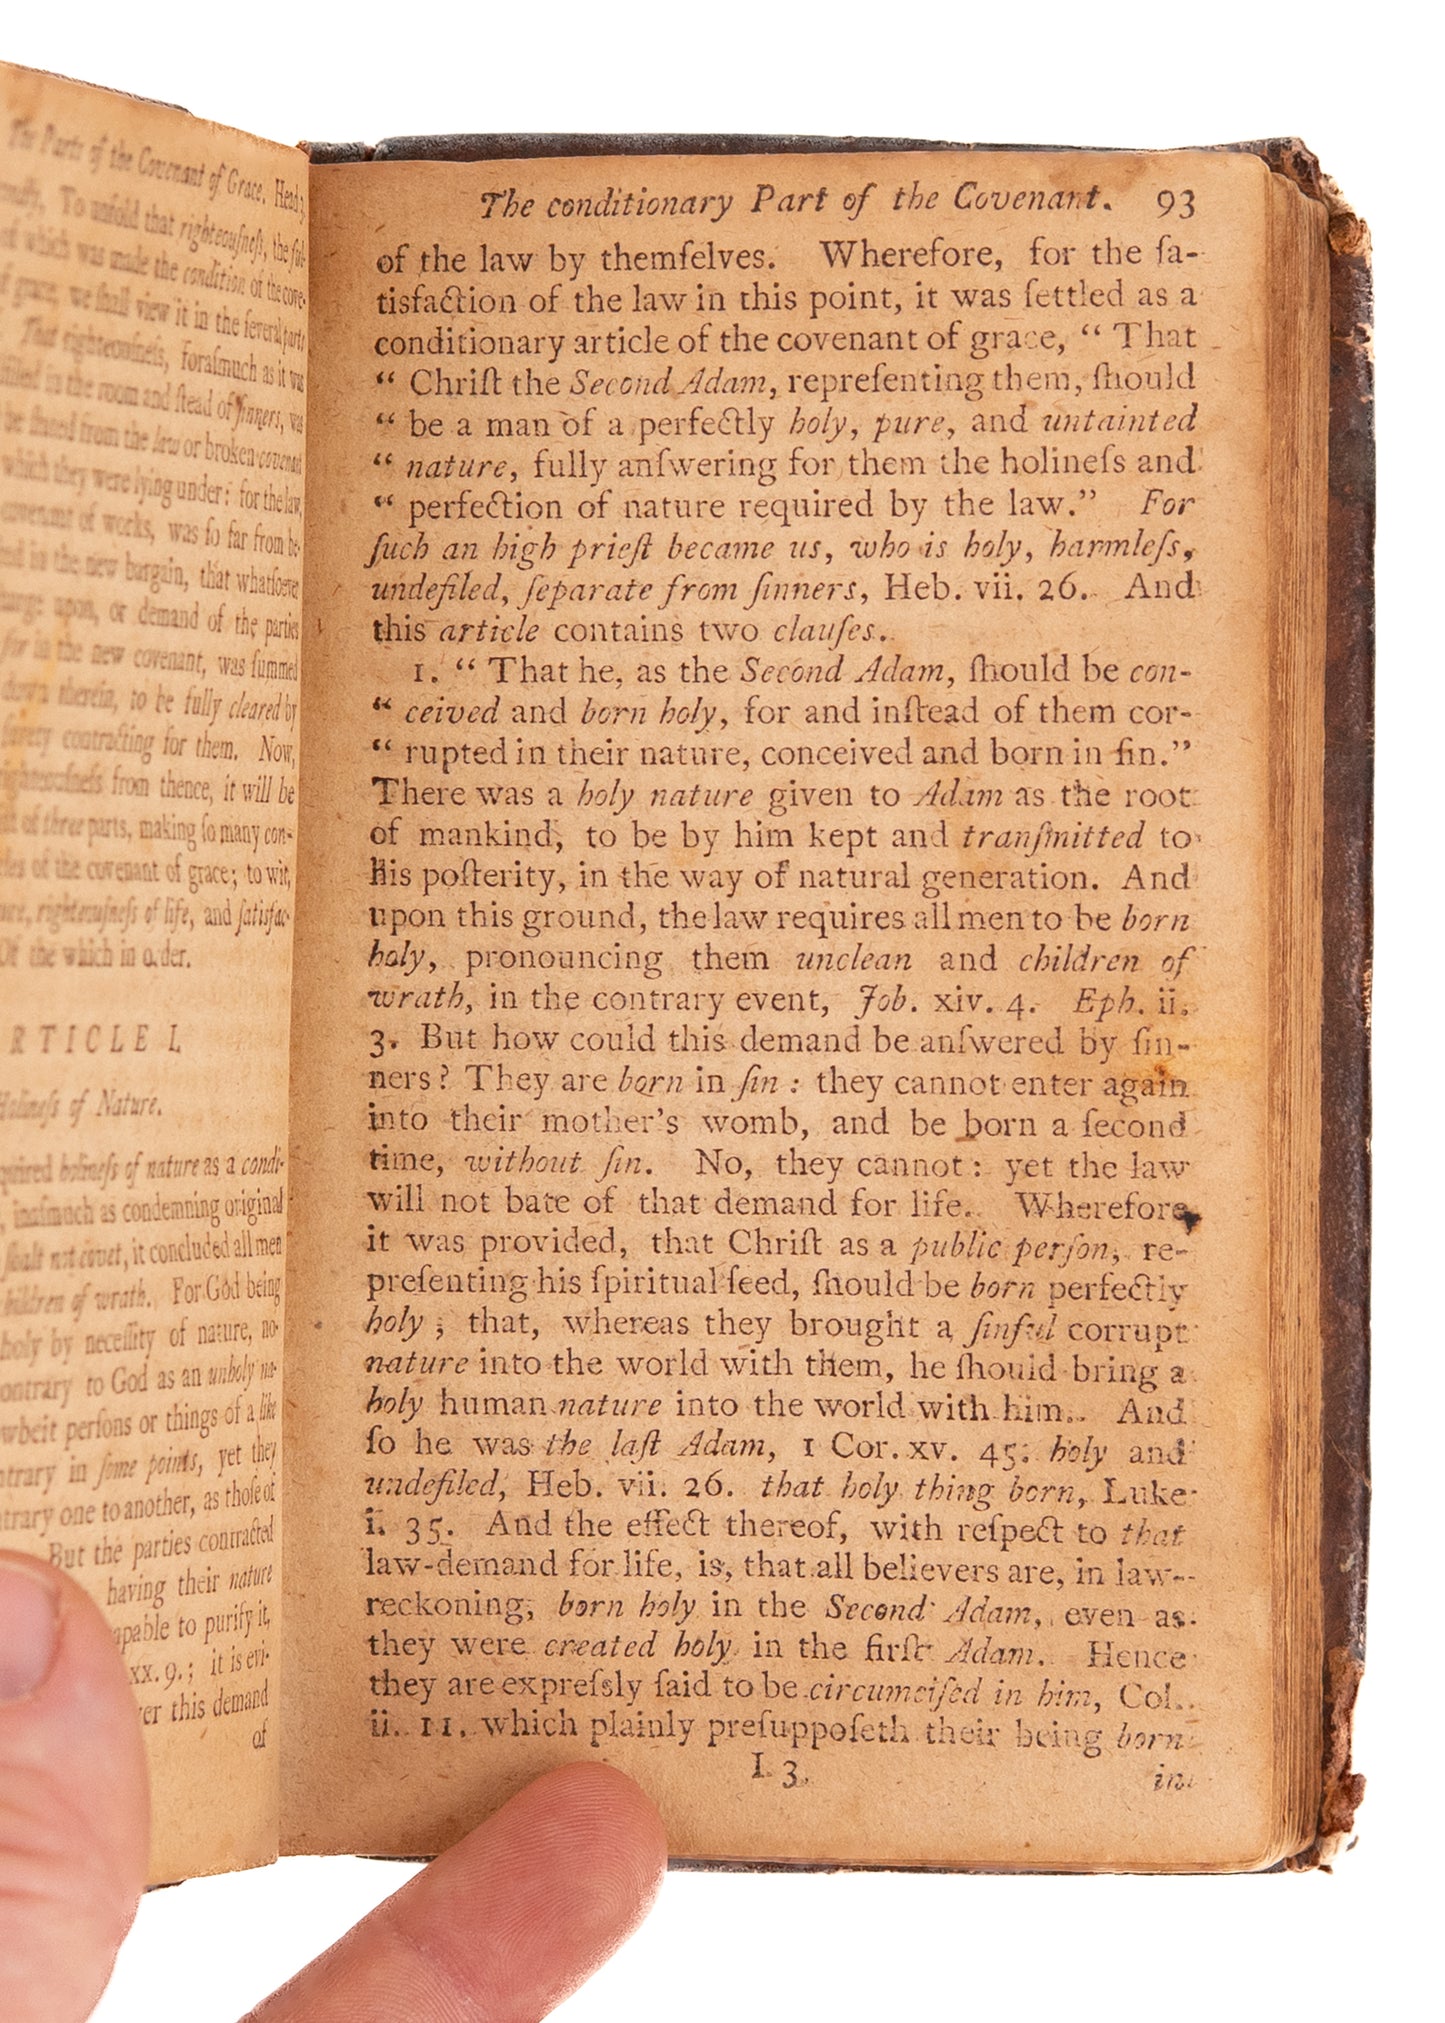 The Parts of the Covenant of Grace. Head
To unfold that righteouſneſs, the ful-
which was made the condition of the cove-
of grace, we ſhall view it in the ſeveral parts
That righteouſneſs, foraſmuch as it was
in the room and ſtead of ſinners, was
be ſtated from the law or broken covenant
which they were lying under: for the law,
covenant of works, was ſo far from be-
in the new bargain, that whatſoever
charge upon, or demand of the parties
for in the new covenant, was ſummed
down therein, to be fully cleared by
ſurety contracting for them. Now,
righteouſneſs from thence, it will be
of three parts, making ſo many con-
of the covenant of grace; to wit,
righteouſneſs of life, and ſatisfac-
Of the which in order.
RTICLE I.
Holineſs of Nature.
holineſs of nature as a condi-
inaſmuch as condemning original
ſhalt not covet, it concluded all men
children of wrath. For God being
holy by neceſſity of nature, no-
contrary to God as an unholy na-
perſons or things of a like
in ſome points, yet they
one to another, as thoſe of
But the parties contracted
having their nature
to purify it,
xx. 9.; it is evi-
this demand
of
The conditionary Part of the Covenant. 93
of the law by themſelves. Wherefore, for the ſa-
tisfaction of the law in this point, it was ſettled as a
conditionary article of the covenant of grace, “ That
“ Chriſt the Second Adam, repreſenting them, ſhould
“ be a man of a perfectly holy, pure, and untainted
“ nature, fully anſwering for them the holineſs and
“ perfection of nature required by the law.” For
ſuch an high prieſt became us, who is holy, harmleſs,
undefiled, ſeparate from ſinners, Heb. vii. 26. And
this article contains two clauſes.
1. “ That he, as the Second Adam, ſhould be con-
“ ceived and born holy, for and inſtead of them cor-
“ rupted in their nature, conceived and born in ſin.”
There was a holy nature given to Adam as the root
of mankind, to be by him kept and tranſmitted to
his poſterity, in the way of natural generation. And
upon this ground, the law requires all men to be born
holy, pronouncing them unclean and children of
wrath, in the contrary event, Job. xiv. 4. Eph. ii.
3. But how could this demand be anſwered by ſin-
ners? They are born in ſin: they cannot enter again
into their mother's womb, and be born a ſecond
time, without ſin. No, they cannot: yet the law
will not bate of that demand for life. Wherefore
it was provided, that Chriſt as a public perſon, re-
preſenting his ſpiritual ſeed, ſhould be born perfectly
holy; that, whereas they brought a ſinful corrupt
nature into the world with them, he ſhould bring a
holy human nature into the world with him. And
ſo he was the laſt Adam, 1 Cor. xv. 45. holy and
undefiled, Heb. vii. 26. that holy thing born, Luke
i. 35. And the effect thereof, with reſpect to that
law-demand for life, is, that all believers are, in law-
reckoning, born holy in the Second Adam, even as
they were created holy in the firſt Adam. Hence
they are expreſsly ſaid to be circumciſed in him, Col.
ii. 11. which plainly preſuppoſeth their being born
I 3
in